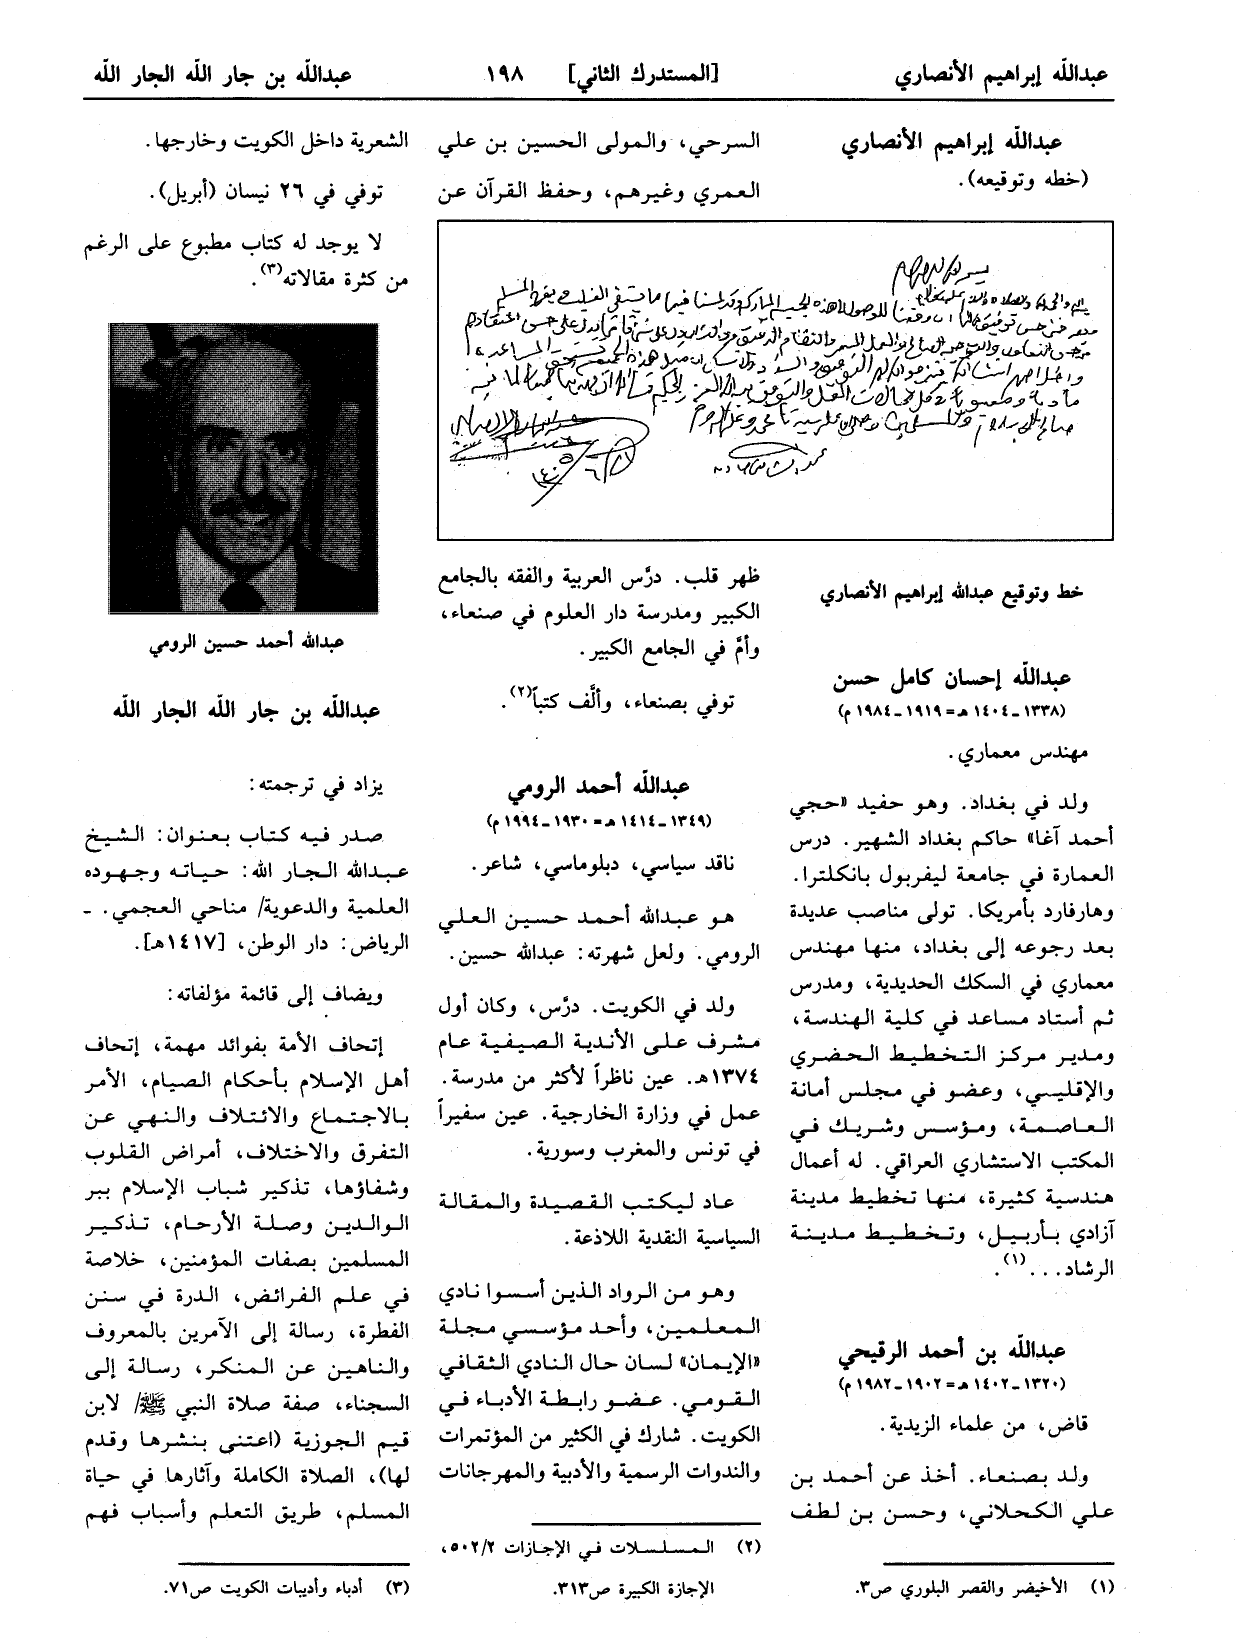 عبدالله إبراهيم الأنصاري [المستدرك الثاني] ١٩٨ عبدالله بن جار الله الجار الله
عبدالله إبراهيم الأنصاري
(خطه وتوقيعه).
خط وتوقيع عبدالله إبراهيم الأنصاري
عبدالله إحسان كامل حسن
(١٣٣٨ ـ ١٤٠٤ هـ = ١٩١٩ ـ ١٩٨٤ م)
مهندس معماري.
ولد في بغداد. وهو حفيد «حجي
أحمد آغا» حاكم بغداد الشهير. درس
العمارة في جامعة ليفربول بانكلترا.
وهارفارد بأمريكا. تولى مناصب عديدة
بعد رجوعه إلى بغداد، منها مهندس
معماري في السكك الحديدية، ومدرس
ثم أستاد مساعد في كلية الهندسة،
ومدير مركز التخطيط الحضري
والإقليمي، وعضو في مجلس أمانة
العاصمة، ومؤسس وشريك في
المكتب الاستشاري العراقي. له أعمال
هندسية كثيرة، منها تخطيط مدينة
آزادي بأربيل، وتخطيط مدينة
الرشاد...(١).
عبدالله بن أحمد الرقيحي
(١٣٢٠ ـ ١٤٠٢ هـ = ١٩٠٢ ـ ١٩٨٢ م)
قاض، من علماء الزيدية.
ولد بصنعاء. أخذ عن أحمد بن
علي الكحلاني، وحسن بن لطف
(١) الأخيضر والقصر البلوري ص٣.
السرحي، والمولى الحسين بن علي
العمري وغيرهم، وحفظ القرآن عن
ظهر قلب. درَّس العربية والفقه بالجامع
الكبير ومدرسة دار العلوم في صنعاء،
وأمَّ في الجامع الكبير.
توفي بصنعاء، وألَّف كتباً(٢).
عبدالله أحمد الرومي
(١٣٤٩ ـ ١٤١٤ هـ = ١٩٣٠ ـ ١٩٩٤ م)
ناقد سياسي، دبلوماسي، شاعر.
هو عبدالله أحمد حسين العلي
الرومي. ولعل شهرته: عبدالله حسين.
ولد في الكويت. درَّس، وكان أول
مشرف على الأندية الصيفية عام
١٣٧٤هـ. عين ناظراً لأكثر من مدرسة.
عمل في وزارة الخارجية. عين سفيراً
في تونس والمغرب وسورية.
عاد ليكتب القصيدة والمقالة
السياسية النقدية اللاذعة.
وهو من الرواد الذين أسسوا نادي
المعلمين، وأحد مؤسسي مجلة
«الإيمان» لسان حال النادي الثقافي
القومي. عضو رابطة الأدباء في
الكويت. شارك في الكثير من المؤتمرات
والندوات الرسمية والأدبية والمهرجانات
(٢) المسلسلات في الإجازات ٥٠٢/٢،
الإجازة الكبيرة ص٣١٣.
الشعرية داخل الكويت وخارجها.
توفي في ٢٦ نيسان (أبريل).
لا يوجد له كتاب مطبوع على الرغم
من كثرة مقالاته(٣).
عبدالله أحمد حسين الرومي
عبدالله بن جار الله الجار الله
يزاد في ترجمته:
صدر فيه كتاب بعنوان: الشيخ
عبدالله الجار الله: حياته وجهوده
العلمية والدعوية/ مناحي العجمي. ـ
الرياض: دار الوطن، [١٤١٧هـ].
ويضاف إلى قائمة مؤلفاته:
إتحاف الأمة بفوائد مهمة، إتحاف
أهل الإسلام بأحكام الصيام، الأمر
بالاجتماع والائتلاف والنهي عن
التفرق والاختلاف، أمراض القلوب
وشفاؤها، تذكير شباب الإسلام ببر
الوالدين وصلة الأرحام، تذكير
المسلمين بصفات المؤمنين، خلاصة
في علم الفرائض، الدرة في سنن
الفطرة، رسالة إلى الآمرين بالمعروف
والناهين عن المنكر، رسالة إلى
السجناء، صفة صلاة النبي ﷺ/ لابن
قيم الجوزية (اعتنى بنشرها وقدم
لها)، الصلاة الكاملة وآثارها في حياة
المسلم، طريق التعلم وأسباب فهم
(٣) أدباء وأديبات الكويت ص٧١.